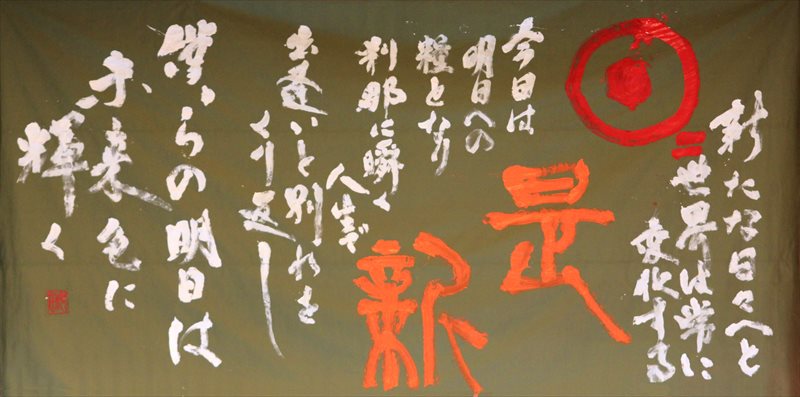 新たな日々へと
世界は常に
変化する
日々
是
新
今日は
明日への
糧となり
刹那に瞬く
人生で
出逢いと別れを
くり返し
僕らの明日は
未来色に
輝く